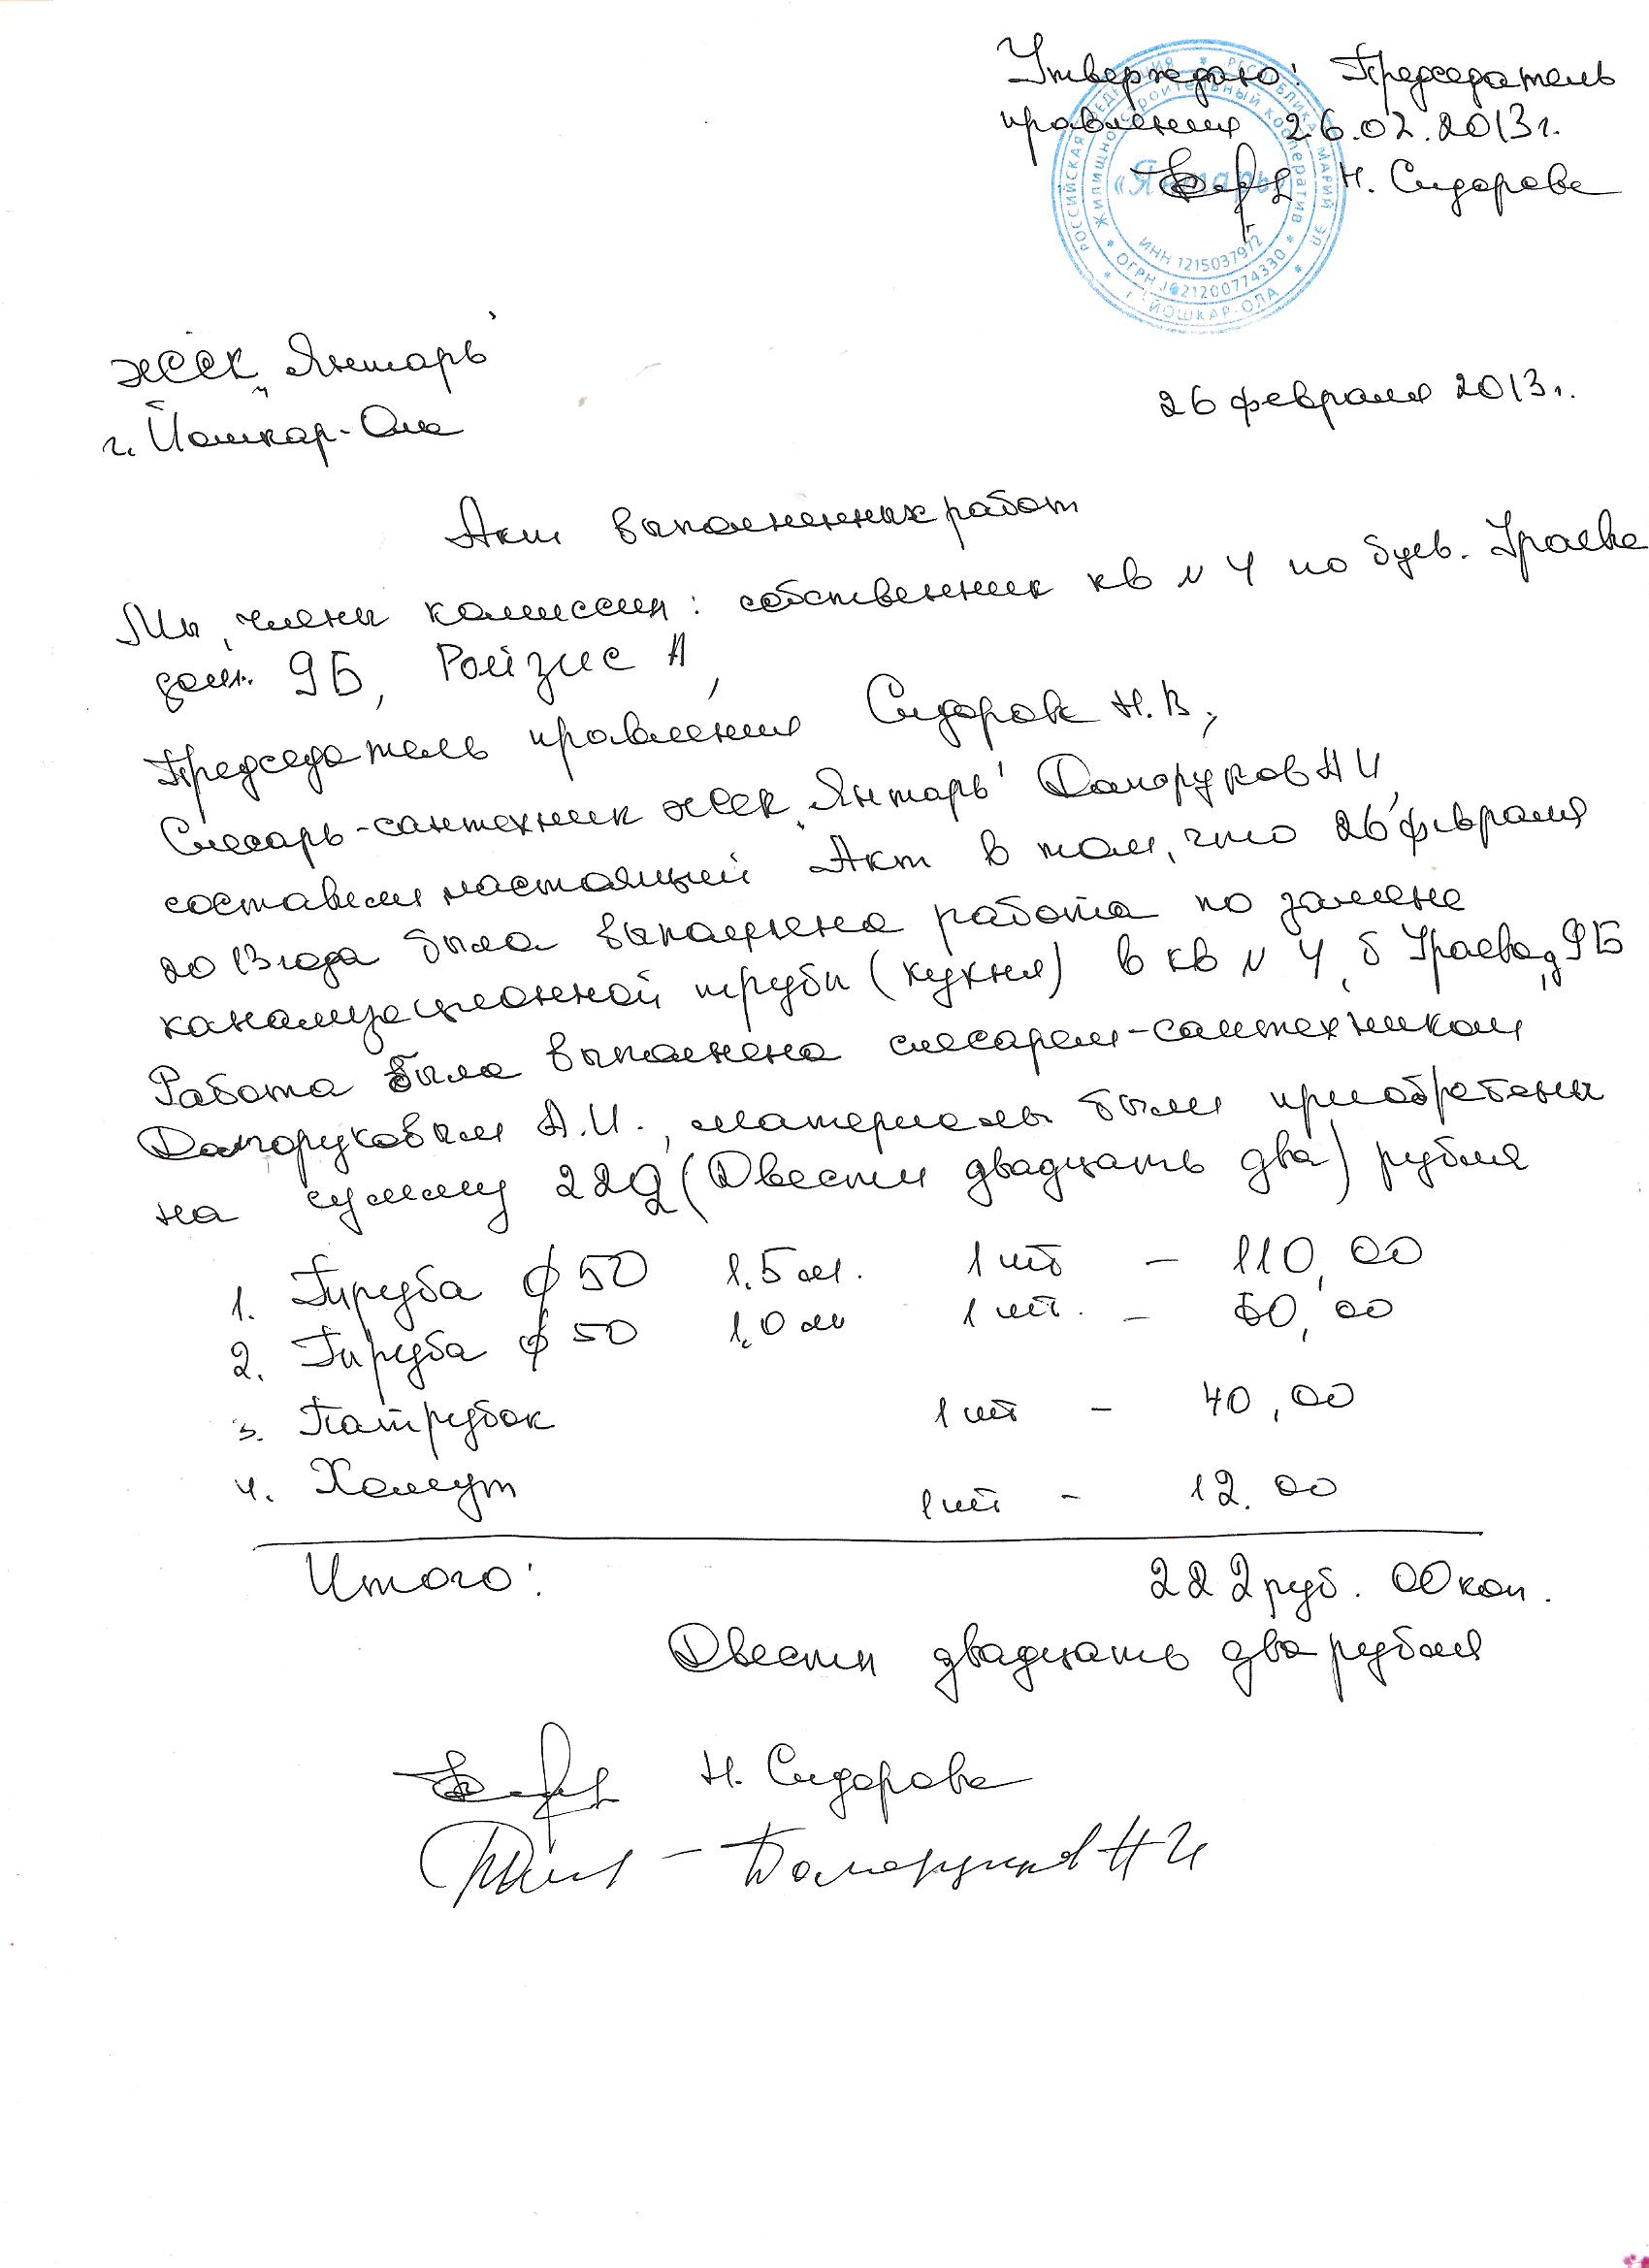 Утверждаю: Председатель
правления 26.02.2013г.
Н. Сидорова
РОССИЙСКАЯ ФЕДЕРАЦИЯ * РЕСПУБЛИКА МАРИЙ ЭЛ * г. ЙОШКАР-ОЛА *
Жилищно-строительный кооператив * ОГРН 1021200774330 *
«Январь»
ИНН 1215037972
ЖССК „Январь"
г. Йошкар-Ола
26 февраля 2013г.
Акт выполненных работ
Мы, члены комиссии: собственник кв N 4 по бульв. Ураева
дом. 9Б, Ройзис А,
Председатель правления Сидорова Н.В,
Слесарь-сантехник ЖССК „Январь" Долоруков А И,
составили настоящий Акт в том, что 26 февраля
2013 года была выполнена работа по замене
канализационной трубы (кухня) в кв N 4, б Ураева, д 9Б
Работа была выполнена слесарем-сантехником
Долоруковым А.И., материалы были приобретены
на сумму 222 (Двести двадцать два) рубля
1. Труба ф 50 1,5 м. 1 шт - 110,00
2. Труба ф 50 1,0 м 1 шт. - 60,00
3. Патрубок 1 шт - 40,00
4. Хомут 1 шт - 12.00
Итого: 222 руб. 00 коп.
Двести двадцать два рубля
Н. Сидорова
- Долоруков А И